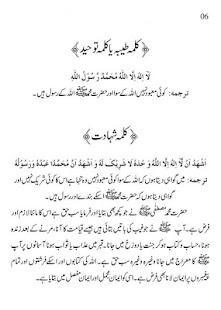 06
﴿کلمہ طیبہ یا کلمہ توحید﴾
لَا اِلٰهَ اِلَّا اللّٰهُ مُحَمَّدٌ رَّسُوْلُ اللّٰهِ
ترجمہ: کوئی معبود نہیں اللہ کے سوا اور حضرت محمد ﷺ اللہ کے رسول ہیں۔
﴿کلمہ شہادت﴾
اَشْهَدُ اَنْ لَّا اِلٰهَ اِلَّا اللّٰهُ وَحْدَهٗ لَا شَرِيْكَ لَهٗ وَ اَشْهَدُ اَنَّ مُحَمَّدًا عَبْدُهٗ وَرَسُوْلُهٗ
ترجمہ: میں گواہی دیتا ہوں کہ اللہ کے سوا کوئی معبود نہیں وہ تنہا ہے اس کا کوئی شریک نہیں اور
میں گواہی دیتا ہوں کہ حضرت محمد ﷺ اسکے بندے اور رسول ہیں۔
حضرت محمد مصطفیٰ ﷺ نے جو کچھ بھی بتایا اور فرمایا وہ سب حق ہے اس کا ماننا لازم اور
فرض ہے۔ آپ ﷺ نے جو غیب کی باتیں بتائی ہیں جیسے قیامت کا آنا، مرنے کے بعد زندہ
ہونا، حساب و کتاب ہو کر جنت یا دوزخ میں جانا، قبر میں عذاب یا ثواب ہونا آسمانوں پر آپ
ﷺ کا معراج میں جانا وغیرہ وغیرہ سب حق ہے۔ اللہ کی کتابوں اور اسکے فرشتوں اور تمام
پیغمبروں پر ایمان لانا بھی فرض ہے۔ اسی کو ایمان مجمل اور ایمان مفصل میں بتایا ہے۔